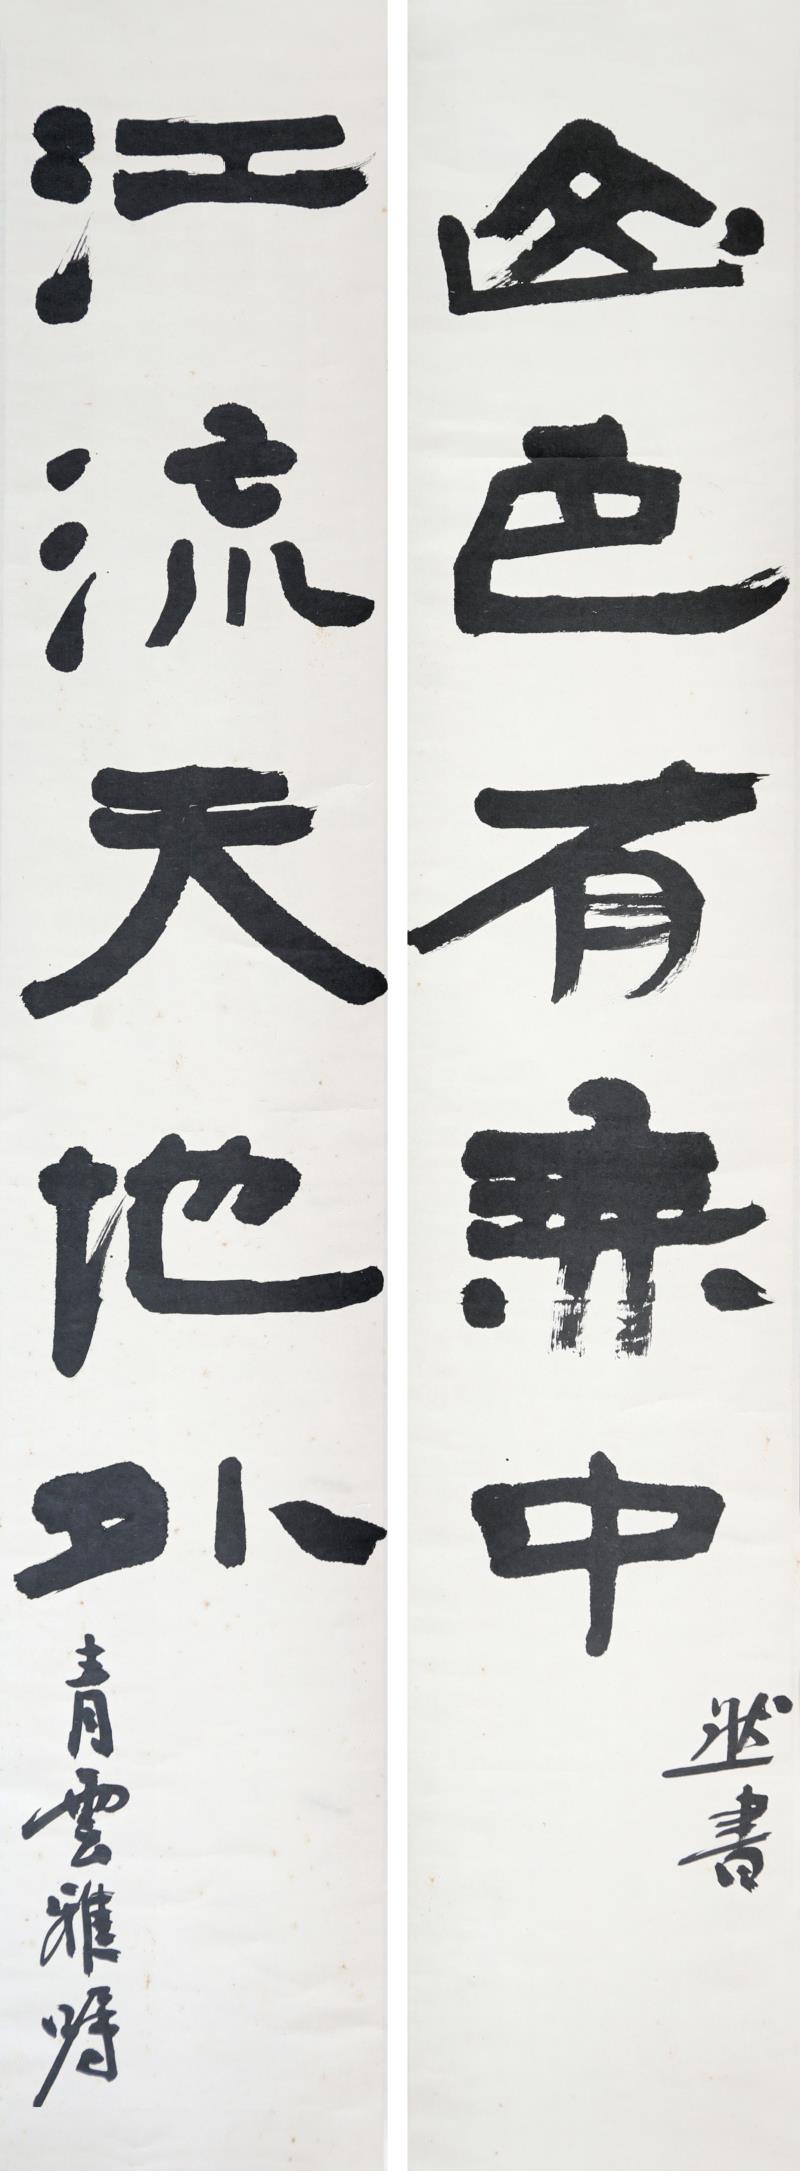 江流天地外
青雲雅嘱
山色有無中
然書